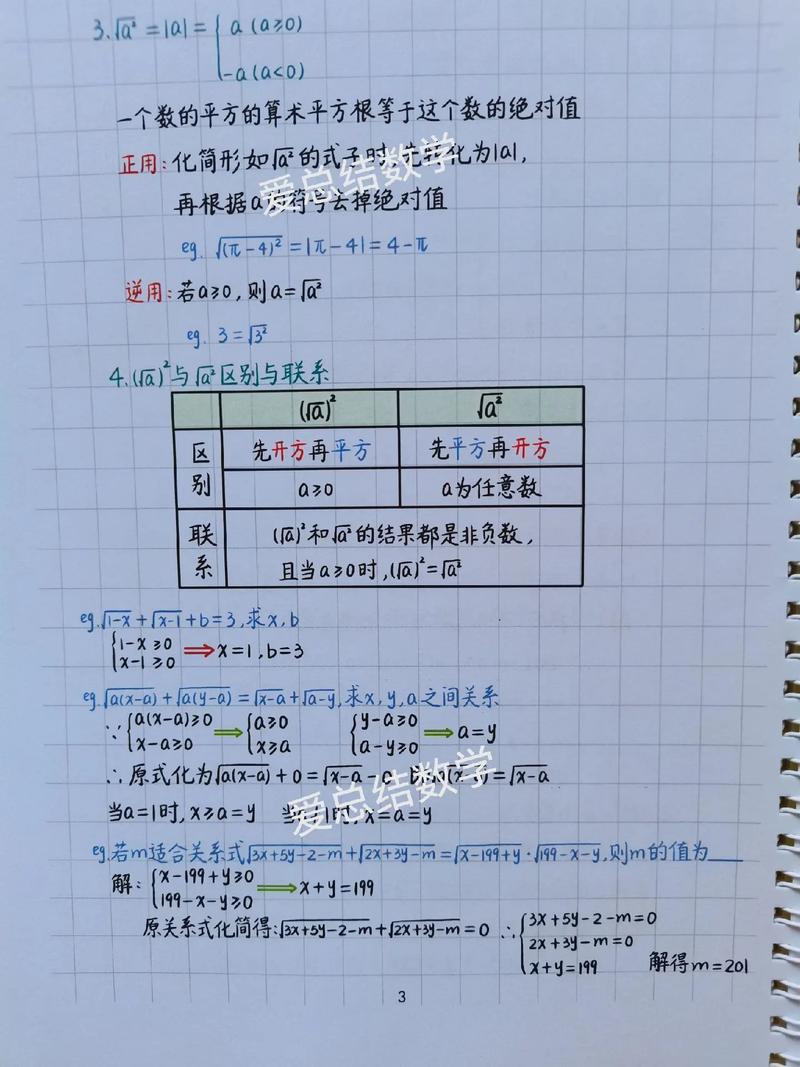 3. √a² = |a| = { a (a≥0)
-a (a<0)
一个数的平方的算术平方根等于这个数的绝对值
正用: 化简形如√a²的式子时,先转化为|a|,
再根据a的符号去掉绝对值
eg. √(π-4)² = |π-4| = 4-π
逆用: 若a≥0, 则a=√a²
eg. 3=√3²
4. (√a)²与√a²区别与联系
(√a)² √a²
区别 先开方再平方 先平方再开方
a≥0 a为任意数
联系 (√a)²和√a²的结果都是非负数,
且当a≥0时, (√a)²=√a²
eg. √1-x + √x-1 + b = 3, 求x, b
{1-x≥0
x-1≥0 ⟹ x=1, b=3
eg. √a(x-a) + √a(y-a) = √x-a + √a-y, 求x, y, a之间关系
∵ {a(x-a)≥0 ⟹ {a≥0 {y-a≥0 ⟹ a=y
x-a≥0 x≥a a-y≥0
∴ 原式化为√a(x-a) + 0 = √x-a = √x-a
当a=1时, x≥a=y 当 1时, x=a=y
eg. 若m适合关系式√3x+5y-2-m + √2x+3y-m = √x-199+y · √199-x-y, 则m的值为____
解: {x-199+y≥0
199-x-y≥0 ⟹ x+y=199
原关系式化简得: √3x+5y-2-m + √2x+3y-m = 0 ∴ {3x+5y-2-m=0
2x+3y-m=0
x+y=199 解得m=201
3
爱总结数学
爱总结数学